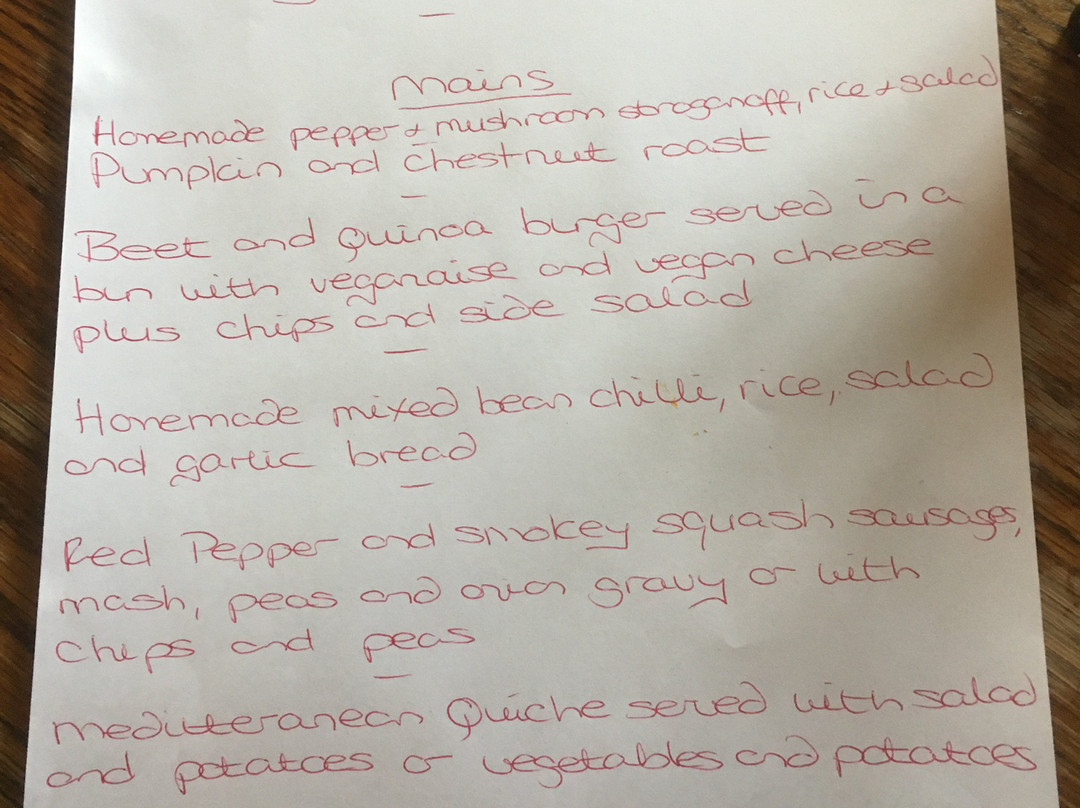 Mains
Homemade pepper & mushroom stroganoff, rice & salad
Pumpkin and Chestnut roast
Beet and Quinoa burger served in a
bun with veganaise and vegan cheese
plus chips and side salad
Homemade mixed bean chilli, rice, salad
and garlic bread
Red Pepper and smokey squash sausages,
mash, peas and onion gravy or with
chips and peas
Meditteranean Quiche served with salad
and potatoes or vegetables and potatoes